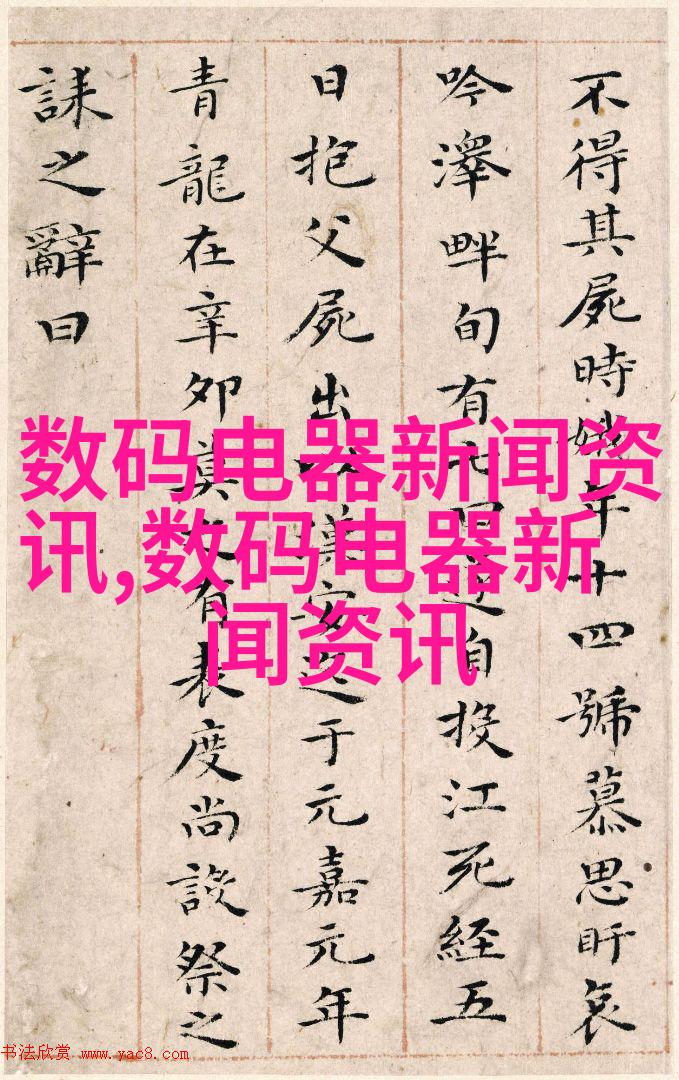 不得其屍時娥年十四號慕思盱哀
吟澤畔旬有七日遂自投江死經五
日抱父屍出以漢安迄于元嘉元年
青龍在辛卯莫之有表度尚設祭之
誄之辭曰
数码电器新闻资
讯,数码电器新
闻资讯
书法欣赏 www.yac8.com